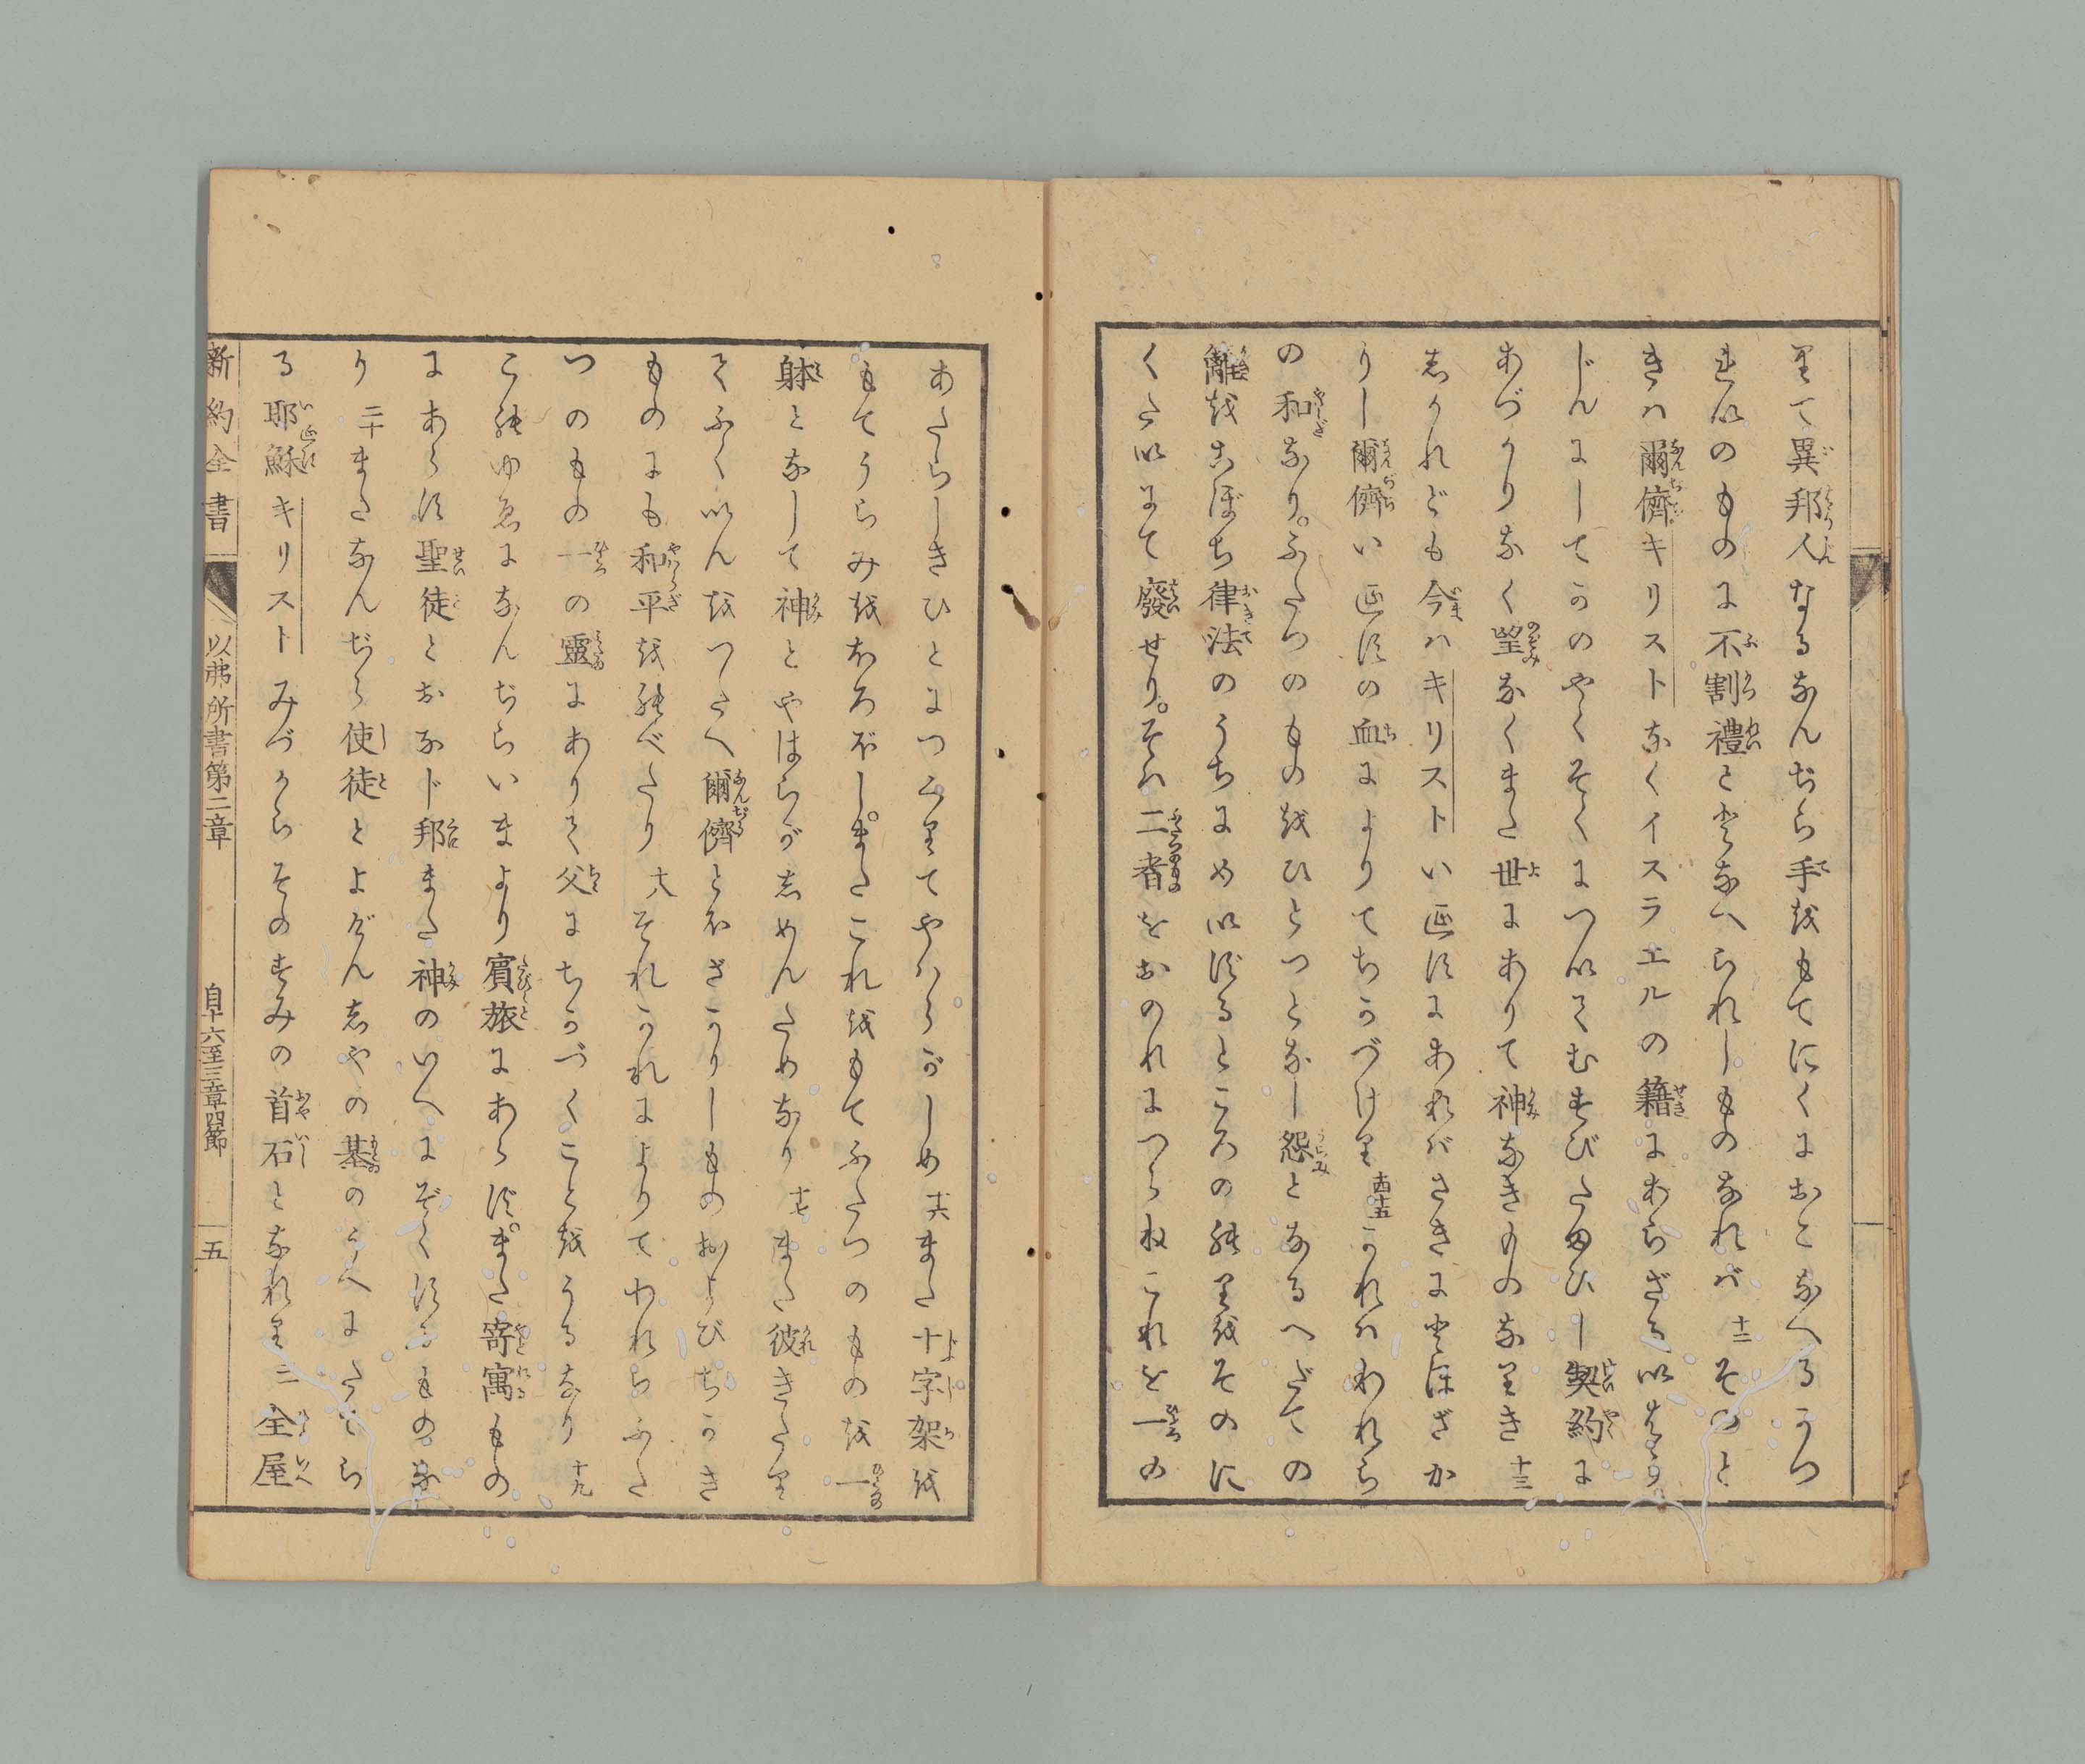 里て異邦人なるなんぢら手越もてにくにおこなへるかつ
れいのものに不割禮ととなへられしものなれバ 十二 そのと
きハ爾儕キリストなくイスラエルの籍にあらざる以はう
じんにしてかのやくそくについてむすびたまひし契約に
あづかりなく望なくまた世にありて神なきものなりき 十三
志かれども今ハキリストいエスにあれバさきにとほざか
りし爾儕いエスの血によりてちかづけり 十四十五 かれハわれら
の和なり。ふたつのもの越ひとつとなし怨となるへだての
籬越こぼち律法のうちにめいずるところののり越そのに
くたいにて廢せり。そハ二者をおのれにつらねこれを一の
あたらしきひとにつくりてやハらがしめ 十六 また十字架越
もてうらみ越ほろぼし。またこれ越もてふたつのもの越一
躰となして神とやはらが志めんためなり 十七 また彼きたり
てふくいん越つたへ爾儕とほざかりしものおよびちかき
ものにも和平越のべたり 十八 それかれによりてわれらふた
つのもの一の靈にありて父にちかづくこと越うるなり 十九
このゆゑになんぢらいまより賓旅にあらず。また寄寓もの
にあらず聖徒とおなじ邦また神のいへにぞくするものな
り 二十 またなんぢら使徒とよげん志やの基のうへにたてら
る耶穌キリストみづからそのすみの首石となれり 二一 全屋
新約全書 以弗所書第二章 自十六至三章四節 五